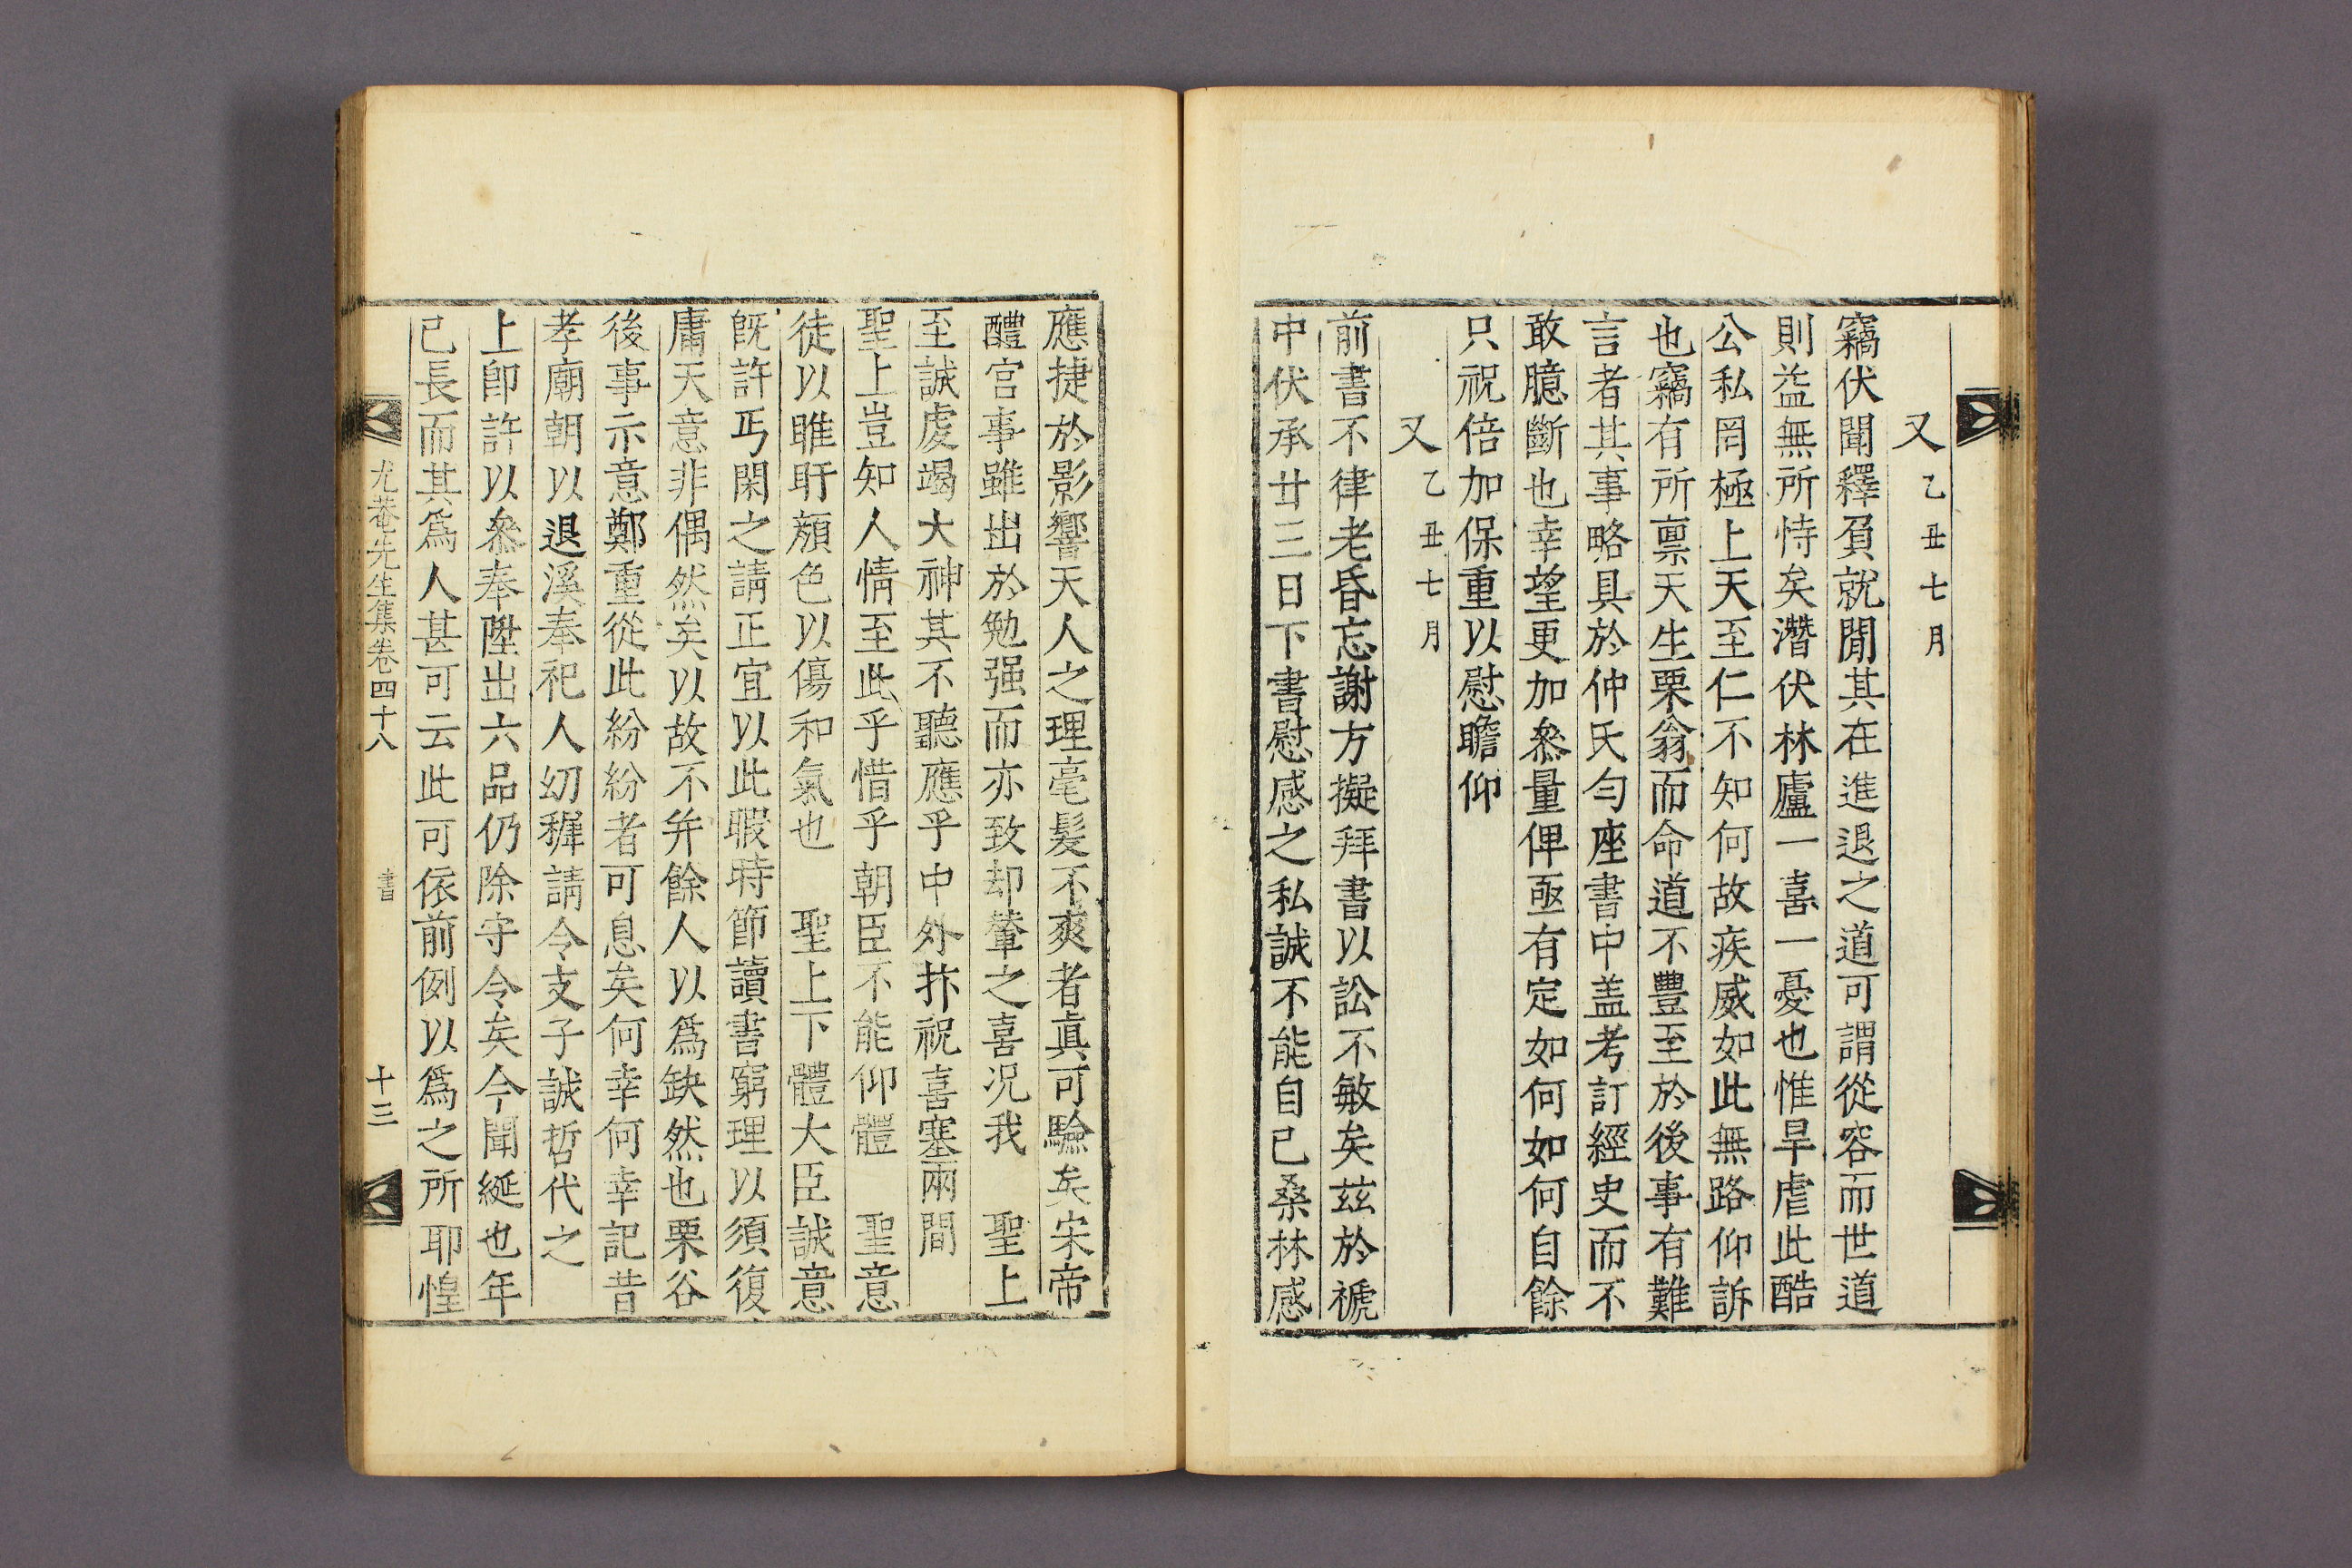 又 乙丑七月
竊伏聞釋負就閒其在進退之道可謂從容而世道
則益無所恃矣潛伏林廬一喜一憂也惟旱虐此酷
公私罔極上天至仁不知何故疾威如此無路仰訴
也竊有所禀天生栗翁而命道不豐至於後事有難
言者其事略具於仲氏匀座書中盖考訂經史而不
敢臆斷也幸望更加叅量俾亟有定如何如何自餘
只祝倍加保重以慰瞻仰
又 乙丑七月
前書不律老昏忘謝方擬拜書以訟不敏矣玆於褫
中伏承廿三日下書慰感之私誠不能自已桑林感
應捷於影響天人之理毫髮不爽者眞可驗矣宋帝
醴宮事雖出於勉强而亦致却輦之喜况我 聖上
至誠虔竭大神其不聽應乎中外抃祝喜塞兩間
聖上豈知人情至此乎惜乎朝臣不能仰體 聖意
徒以睢盱頽色以傷和氣也 聖上下體大臣誠意
旣許丐閑之請正宜以此暇時節讀書窮理以須復
庸天意非偶然矣以故不弁餘人以爲缺然也栗谷
後事示意鄭重從此紛紛者可息矣何幸何幸記昔
孝廟朝以退溪奉祀人幼穉請令支子誠哲代之
上卽許以叅奉陞出六品仍除守令矣今聞綖也年
已長而其爲人甚可云此可依前例以爲之所耶惶
尤菴先生集卷四十八 書 十三